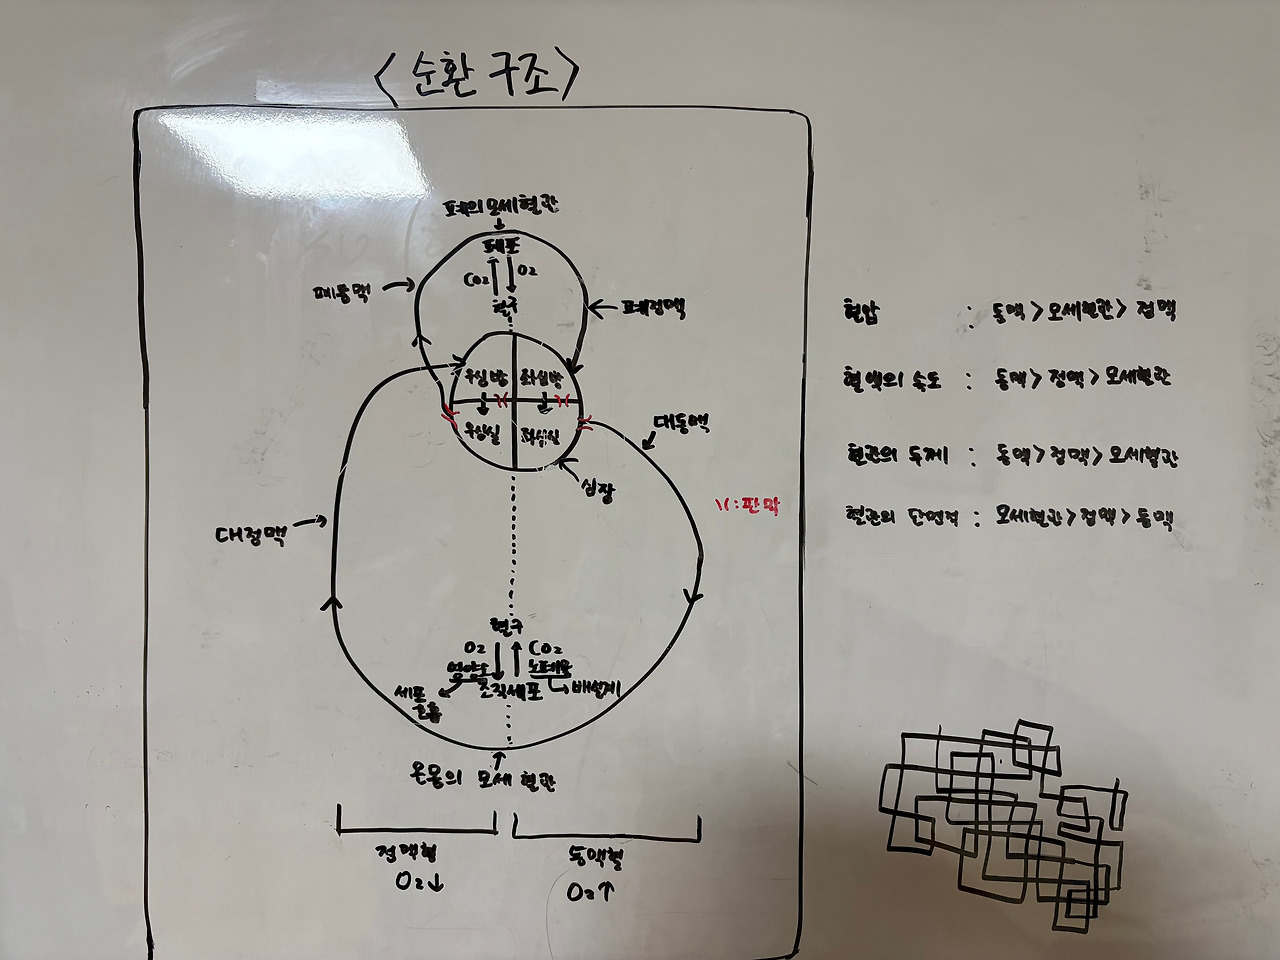 <순환 구조>
폐의 모세혈관
폐포
CO₂ O₂
혈구
폐동맥
폐정맥
우심방 좌심방
우심실 좌심실
대동맥
심장
대정맥
\(:판막
혈구
O₂ CO₂
영양소 노폐물
조직세포
세포
호흡
배설계
온몸의 모세혈관
정맥혈
O₂↓
동맥혈
O₂↑
혈압 : 동맥>모세혈관>정맥
혈액의 속도 : 동맥>정맥>모세혈관
혈관의 두께 : 동맥>정맥>모세혈관
혈관의 단면적 : 모세혈관>정맥>동맥